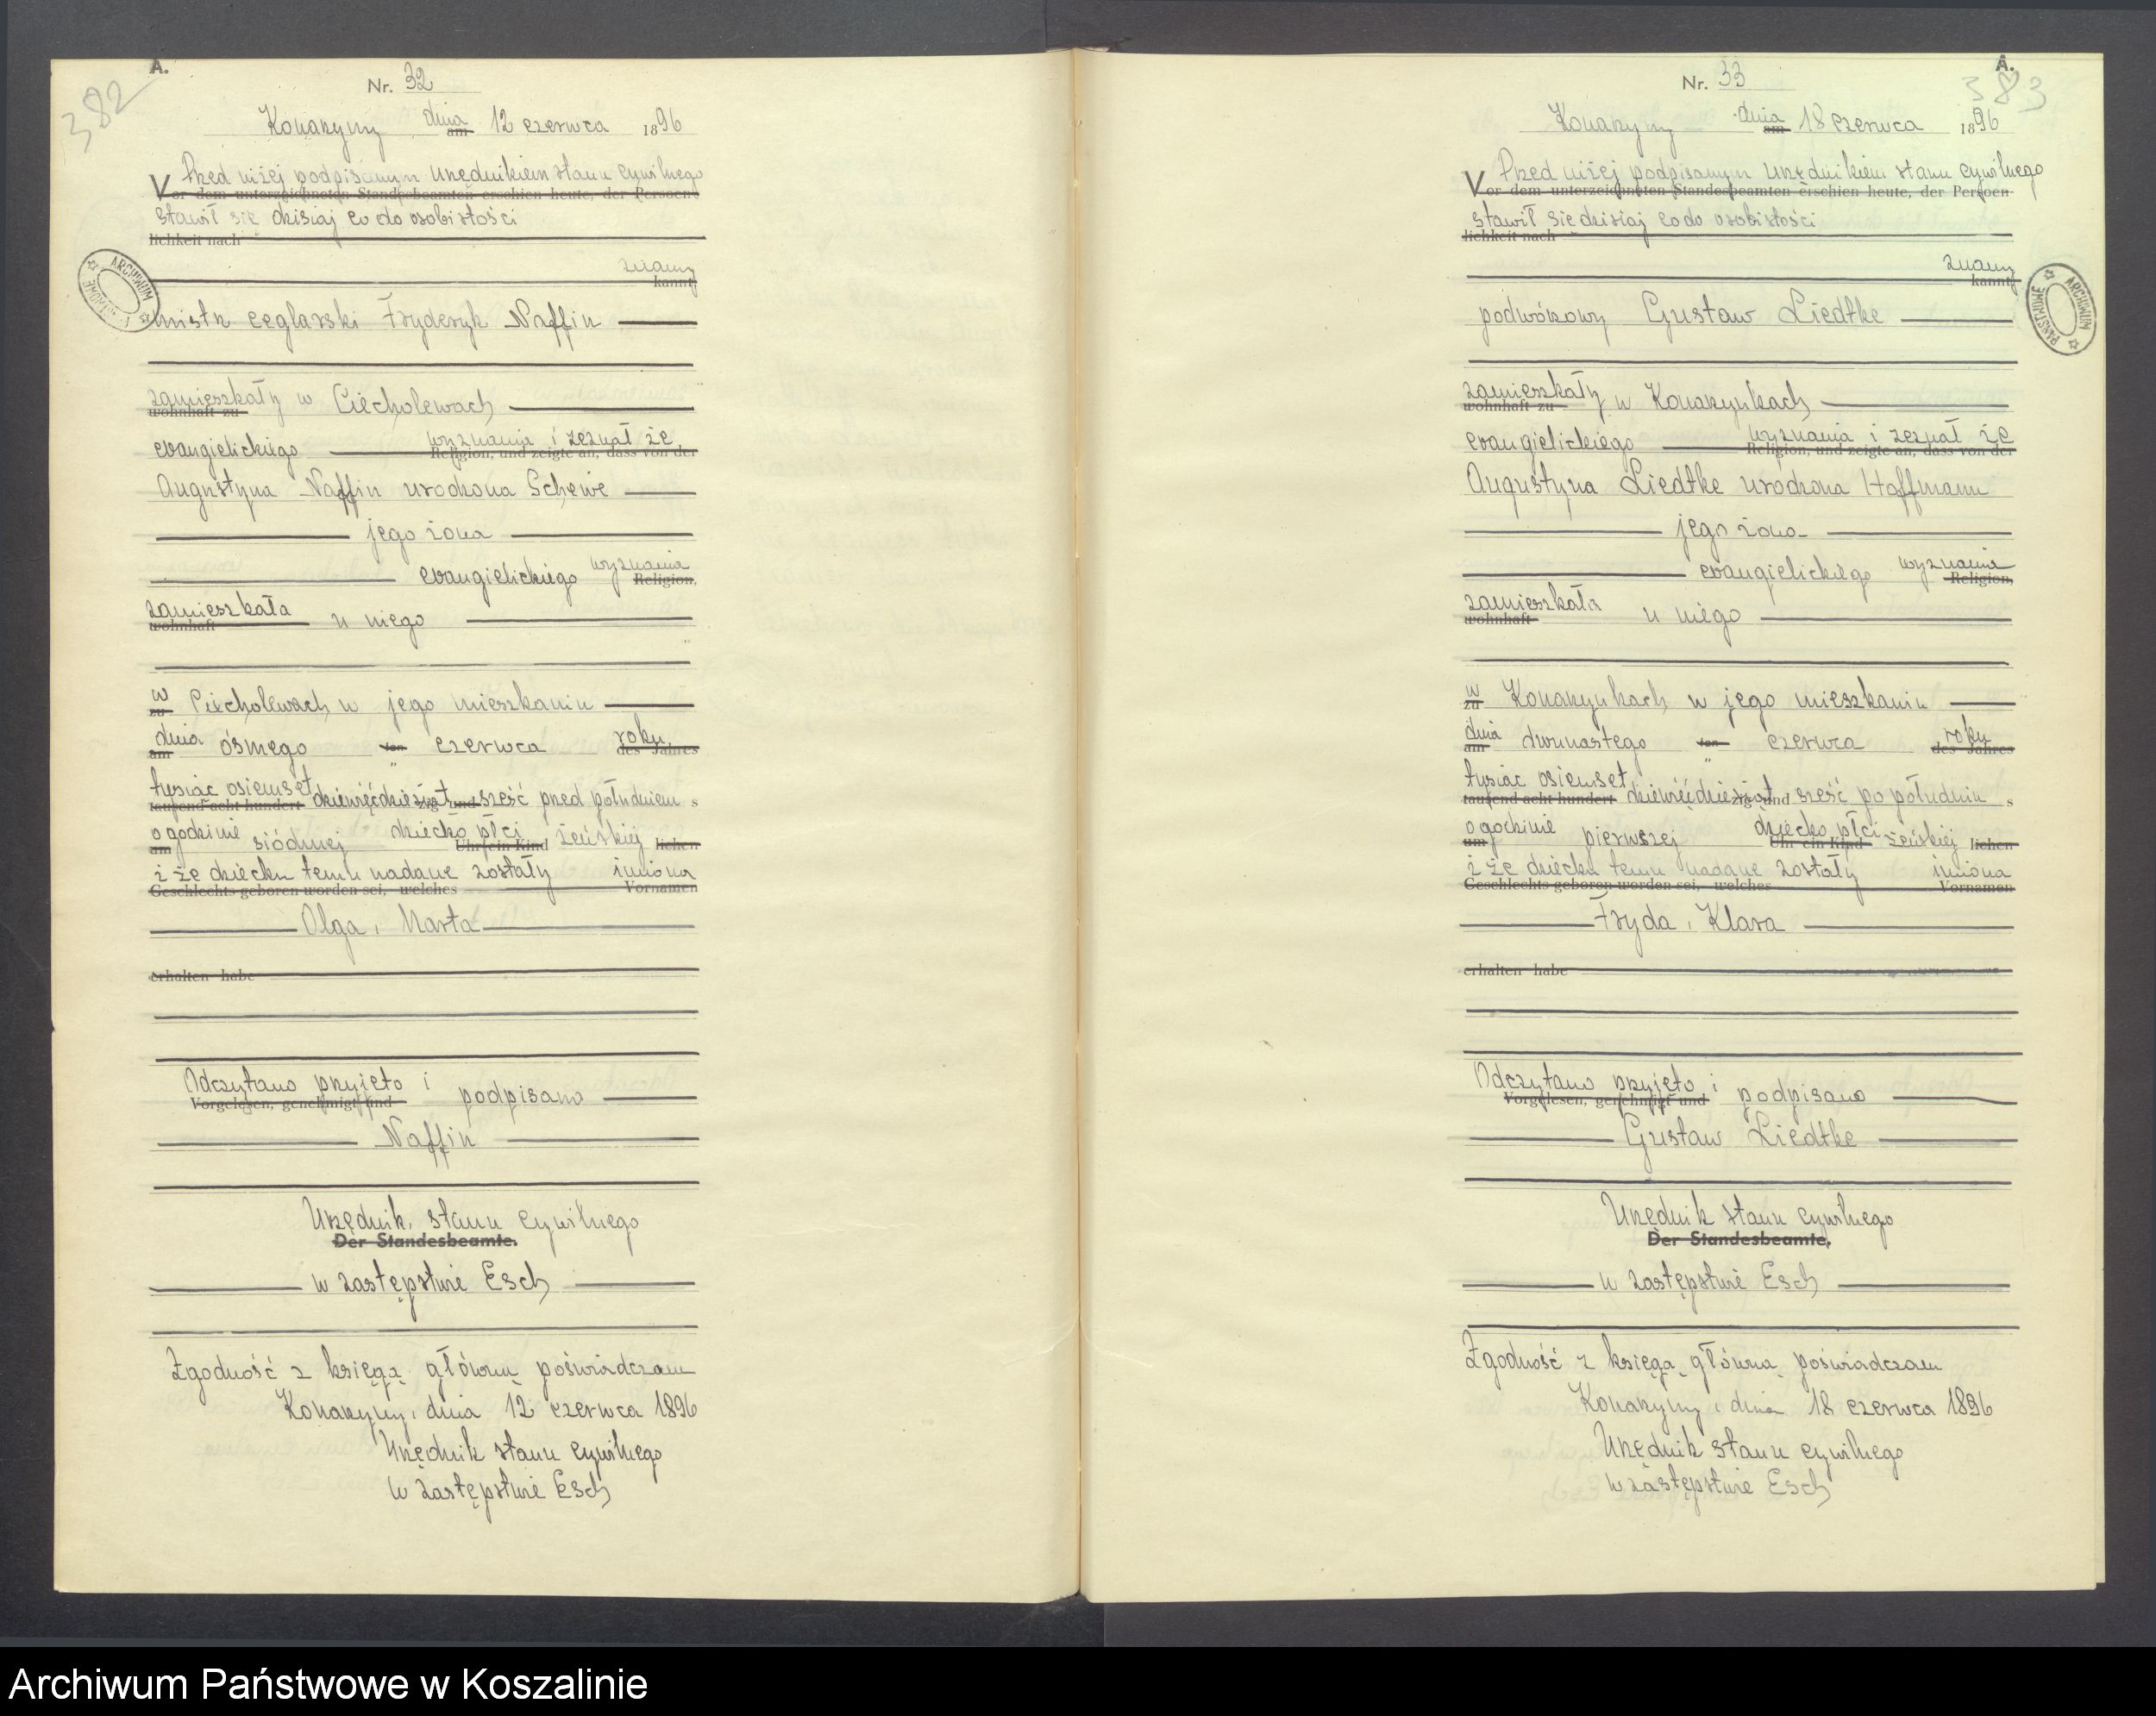 382
A.
Nr. 32
Konarzyny dnia am 12 czerwca 1896
Przed niżej podpisanym urzędnikiem stanu cywilnego
Vor dem unterzeichneten Standesbeamten erschien heute, der Persoen-
stawił się dzisiaj co do osobistości
lichkeit nach
znany
kannt,
mistrz ceglarski Fryderyk Naffin
zamieszkały w Ciecholewach
wohnhaft zu
evangielickiego wyznania i zeznał że
Religion, und zeigte an, dass von der
Augustyna Naffin urodzona Schewe
jego żona
evangielickiego wyznania
Religion,
zamieszkała u niego
wohnhaft
w zu Ciecholewach w jego mieszkaniu
dnia am ósmego ten czerwca roku
des Jahres
tysiąc osiemset dziewięćdziesiąt sześć przed południem s
tausend acht hundert zig und
o godzinie siódmej dziecko płci żeńskiej lichen
um Uhr ein Kind
i że dziecku temu nadane zostały imiona
Geschlechts geboren worden sei, welches Vornamen
Olga, Marta
erhalten habe
Odczytano przyjęto i podpisano
Vorgelesen, genehmigt und
Naffin
Urzędnik stanu cywilnego
Der Standesbeamte.
w zastępstwie Esch
Zgodność z księgą główną poświadczam
Konarzyny, dnia 12 czerwca 1896
Urzędnik stanu cywilnego
w zastępstwie Esch
ARCHIWUM PAŃSTWOWE
A.
383
Nr. 33
Konarzyny dnia am 18 czerwca 1896
Przed niżej podpisanym urzędnikiem stanu cywilnego
Vor dem unterzeichneten Standesbeamten erschien heute, der Persoen-
stawił się dzisiaj co do osobistości
lichkeit nach
znany
kannt,
podwórzowy Gustaw Liedtke
zamieszkały w Konarzynkach
wohnhaft zu
evangielickiego wyznania i zeznał że
Religion, und zeigte an, dass von der
Augustyna Liedtke urodzona Hoffmann
jego żona
evangielickiego wyznania
Religion,
zamieszkała u niego
wohnhaft
w zu Konarzynkach w jego mieszkaniu
dnia am dwunastego ten czerwca roku
des Jahres
tysiąc osiemset dziewięćdziesiąt sześć po południu s
tausend acht hundert zig und
o godzinie pierwszej dziecko płci żeńskiej lichen
um Uhr ein Kind
i że dziecku temu nadane zostały imiona
Geschlechts geboren worden sei, welches Vornamen
Fryda, Klara
erhalten habe
Odczytano przyjęto i podpisano
Vorgelesen, genehmigt und
Gustaw Liedtke
Urzędnik stanu cywilnego
Der Standesbeamte.
w zastępstwie Esch
Zgodność z księgą główną poświadczam
Konarzyny, dnia 18 czerwca 1896
Urzędnik stanu cywilnego
w zastępstwie Esch
ARCHIWUM PAŃSTWOWE
Archiwum Państwowe w Koszalinie